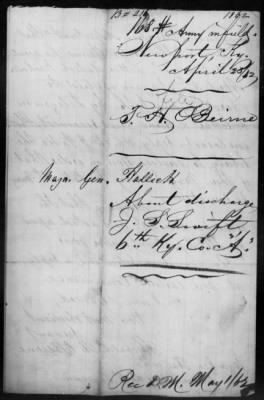 1862
Army in field
Newport, Ky.
April 25/62
T. H. O'Beirne
Majr. Gen. Halleck
About discharge
J. S. Swift
6th Ky. Co. "A".
Rec'd M. May 1/62